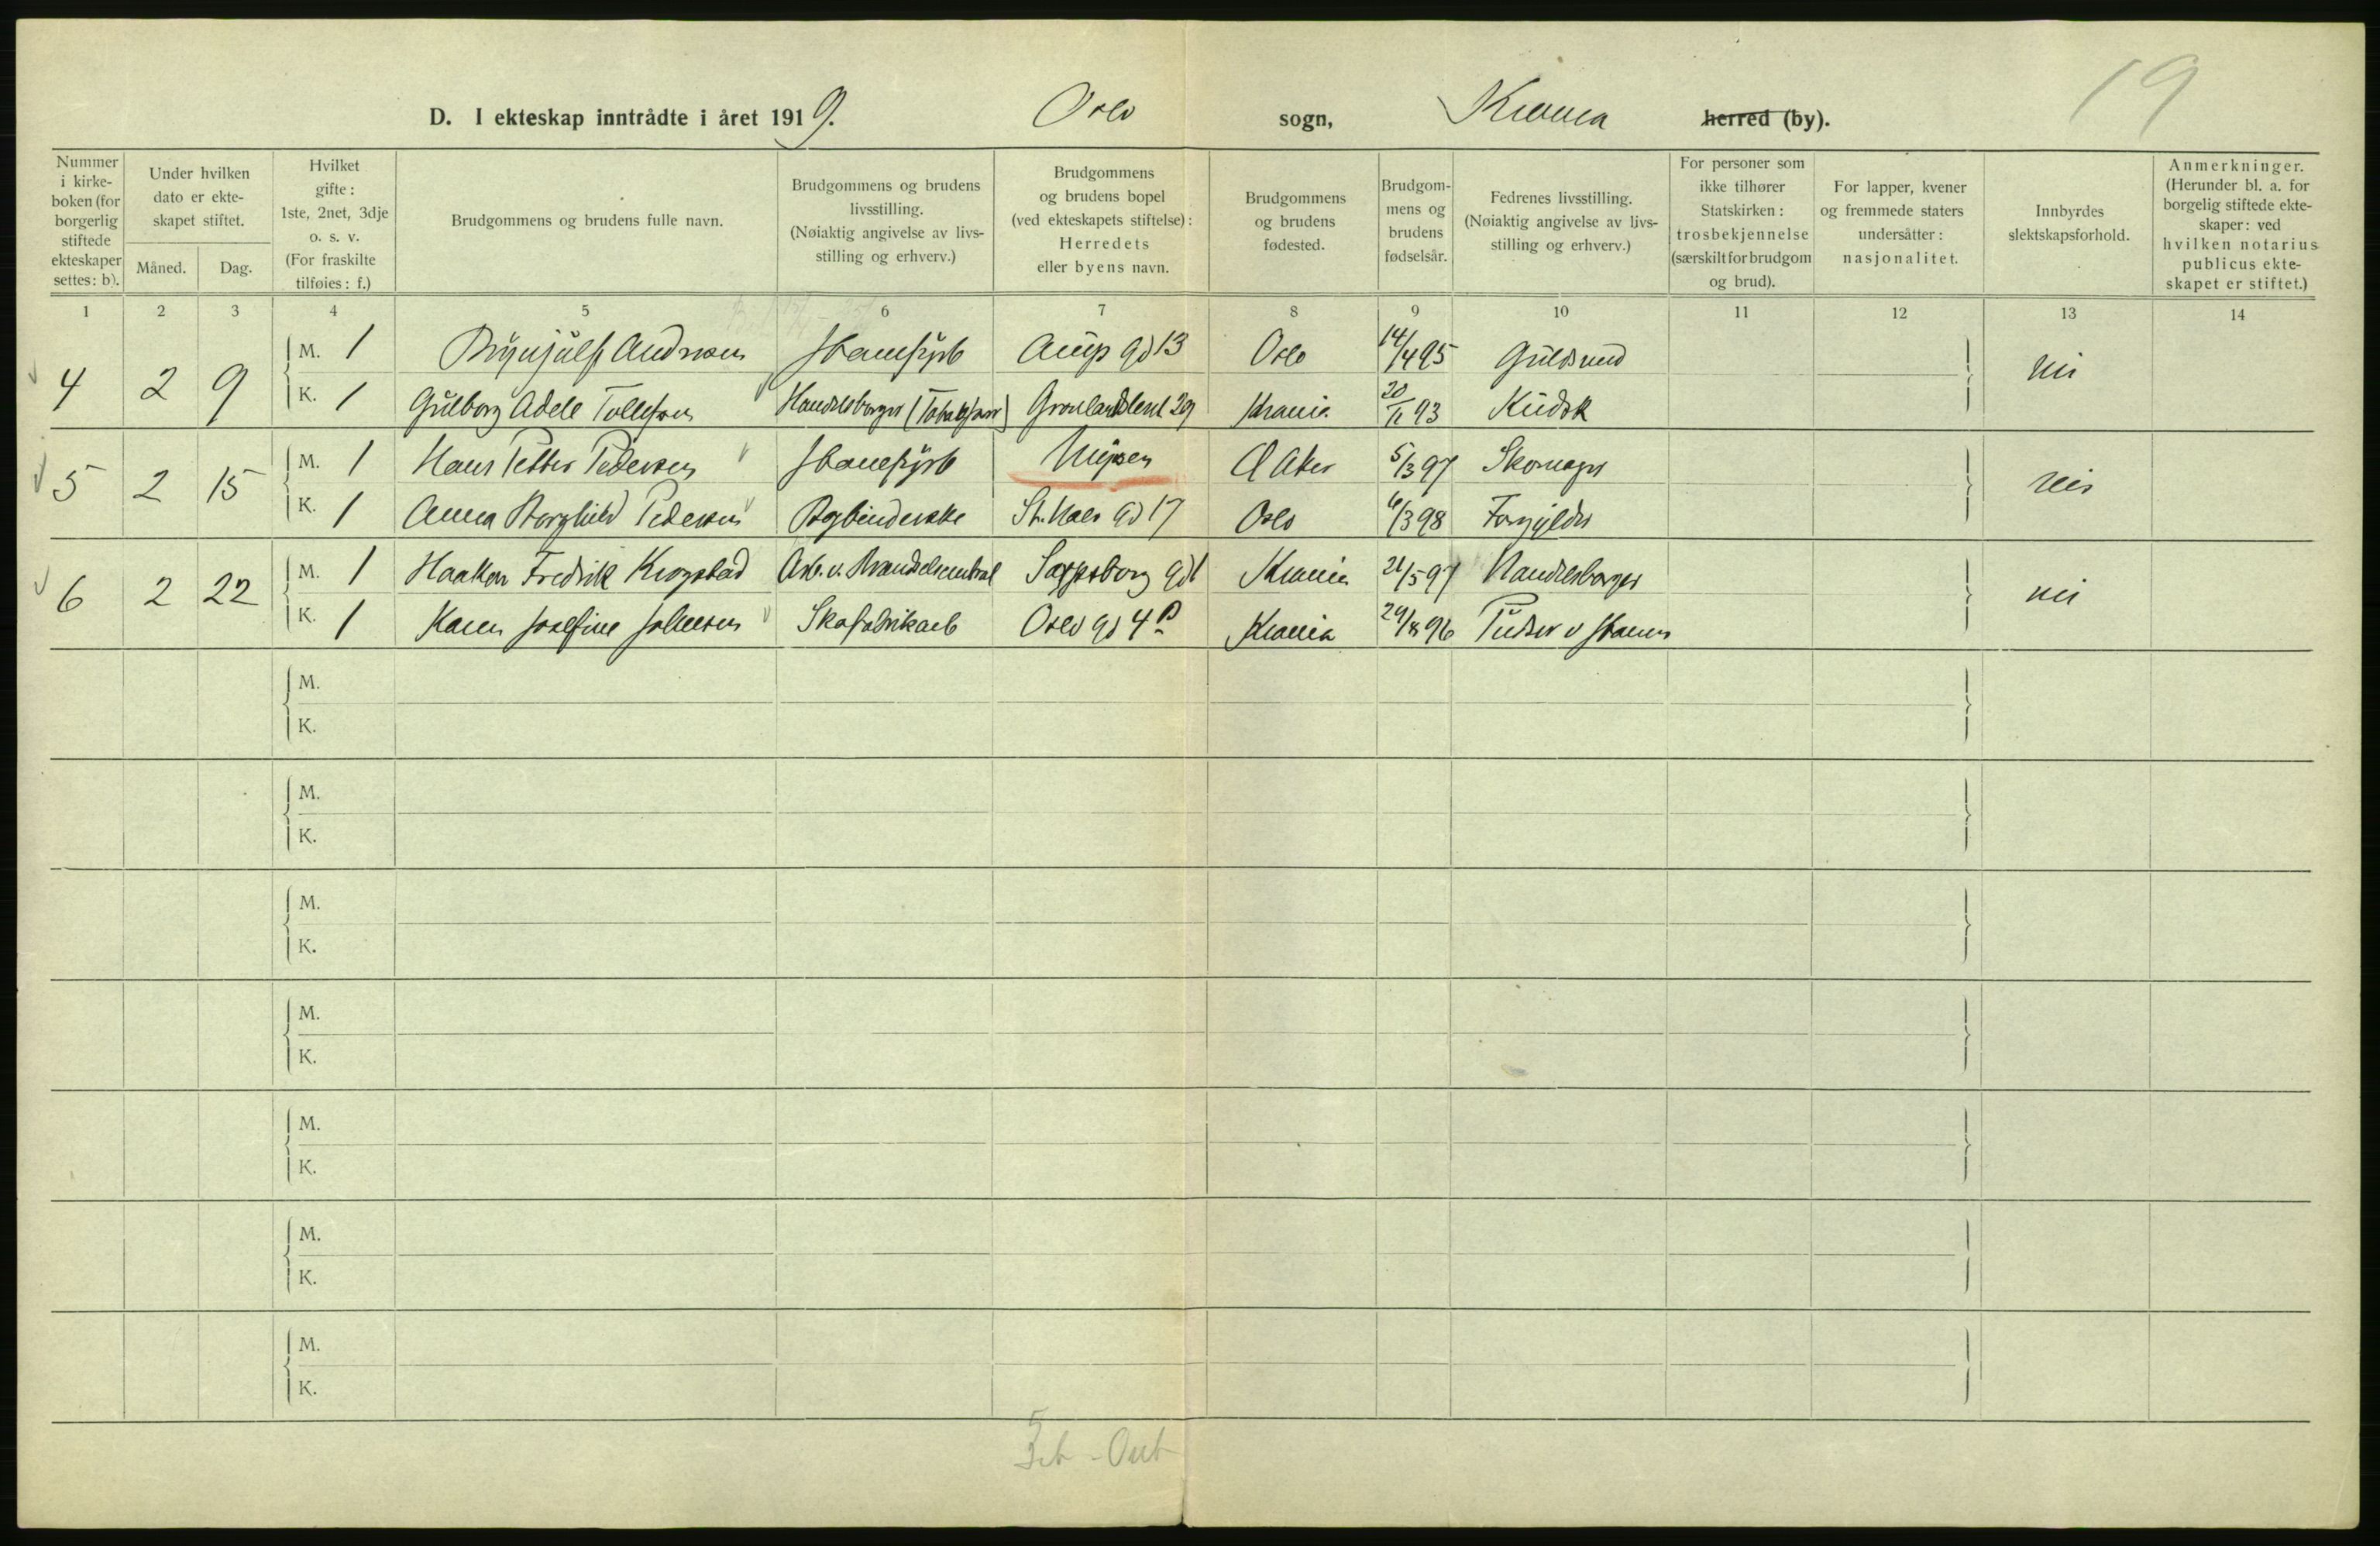 19
D. I ekteskap inntrådte i året 1919. Oslo sogn, Krania herred (by).
Nummer i kirkeboken (for borgerlig stiftede ekteskaper settes: b).
Under hvilken dato er ekteskapet stiftet.
Måned. Dag.
Hvilket gifte: 1ste, 2net, 3dje o. s. v. (For fraskilte tilføies: f.)
Brudgommens og brudens fulle navn.
Brudgommens og brudens livsstilling. (Nøiaktig angivelse av livsstilling og erhverv.)
Brudgommens og brudens bopel (ved ekteskapets stiftelse): Herredets eller byens navn.
Brudgommens og brudens fødested.
Brudgommens og brudens fødselsår.
Fedrenes livsstilling. (Nøiaktig angivelse av livsstilling og erhverv.)
For personer som ikke tilhører Statskirken: trosbekjennelse (særskilt for brudgom og brud).
For lapper, kvener og fremmede staters undersåtter: nasjonalitet.
Innbyrdes slektskapsforhold.
Anmerkninger. (Herunder bl. a. for borgelig stiftede ekteskaper: ved hvilken notarius publicus ekteskapet er stiftet.)
1 2 3 4 5 6 7 8 9 10 11 12 13 14
4 2 9 M. 1 Brynjulf Andresen gd 13 Oslo 14/4 95 nei
K. 1 Gulborg Adele Tollefsen Handelsborger Grønlandsleret 29 Krania 20/11 93 Kudsk
5 2 15 M. 1 Hans Petter Pedersen V. Aker 5/3 97 Skomager nei
K. 1 Anna Borghild Pedersen Bogbinderske St. Hals gd 17 Oslo 6/3 98 Forgylder
6 2 22 M. 1 Haakon Fredrik Krogstad Arb. v. Brændselcentral Sarpsborg gd 1 Krania 21/5 97 Handelsborger nei
K. 1 Karen Josefine Johnsen Skofabrikarb Oslo gd 4 B Krania 29/8 96 Pudser v
M.
K.
M.
K.
M.
K.
M.
K.
M.
K.
M.
K.
M.
K.